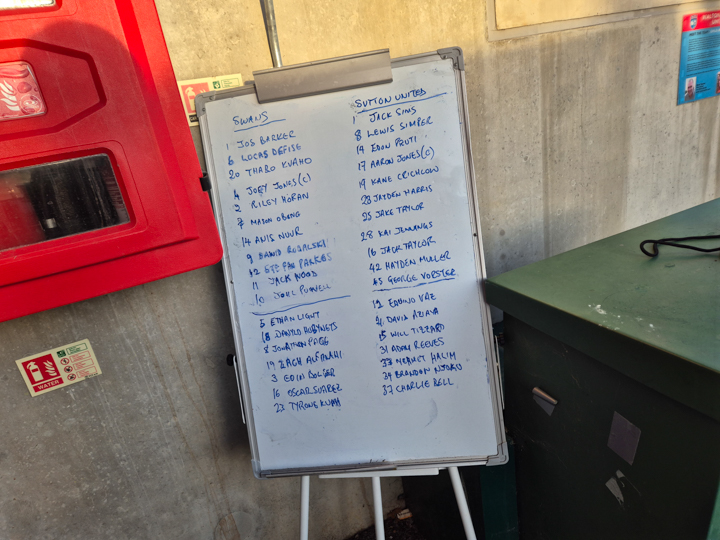 SWANS
1 JOS BARKER
6 LUCAS DEFISE
20 THABO KVAHO
4 JOEY JONES (C)
2 RILEY HORAN
7 MASON OBENG
14 ANIS NUUR
9 DAWID ROGALSKI
12 PARKES
11 JACK WOOD
10 JOEL
5 ETHAN LIGHT
18 DANYLO
8 JONATHON PAGE
19 ZACH
3 EDIN BOLGER
16 OSCAR SUAREZ
23 TYRONE
SUTTON UNITED
1 JACK SIMS
8 LEWIS SIMPER
14 EDON PRUTI
17 AARON JONES (C)
19 KANE CRICHLOW
23 JAYDEN HARRIS
25 JAKE TAYLOR
28 KAI JENNINGS
16 JACK TAYLOR
42 HAYDEN MULLER
45 GEORGE VORSTER
12 VAZ
DAVID AZIAYA
15 WILL TIZZARD
31 ADAM REEVES
33 HALIM
34 BRANDON NJOKU
37 CHARLIE BELL
WATER